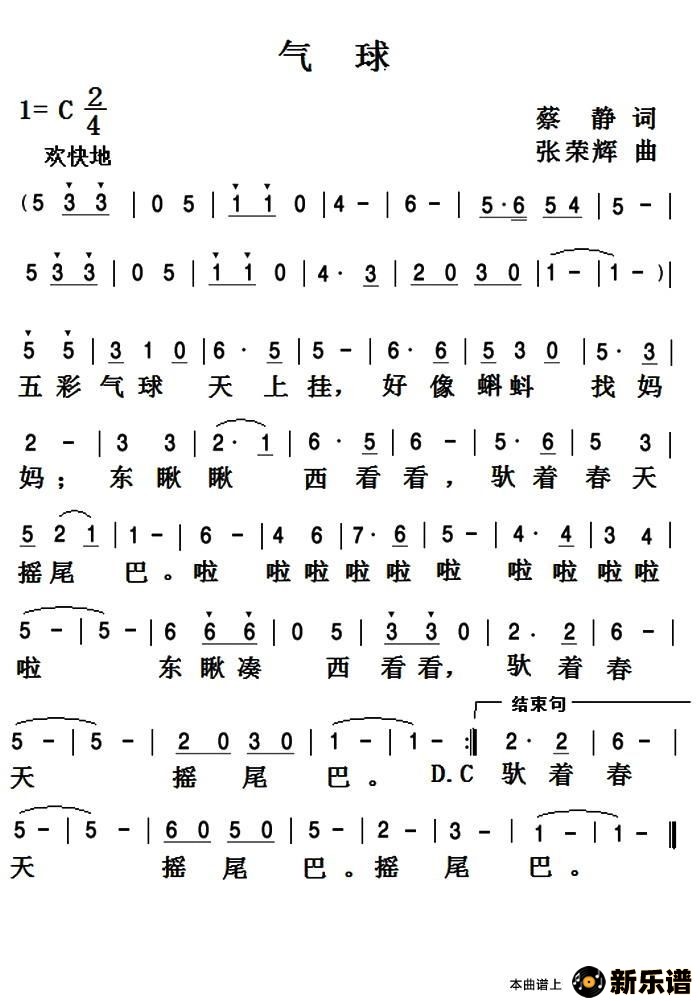 气 球
1= C 2/4
蔡 静 词
欢快地
张荣辉 曲
( 5 3 3 | 0 5 | 1 1 0 | 4 - | 6 - | 5 · 6 5 4 | 5 - |
5 3 3 | 0 5 | 1 1 0 | 4 · 3 | 2 0 3 0 | 1 - | 1 - ) |
5 5 | 3 1 0 | 6 · 5 | 5 - | 6 · 6 | 5 3 0 | 5 · 3 |
五 彩 气 球 天 上 挂， 好 像 蝌 蚪 找 妈
2 - | 3 3 | 2 · 1 | 6 · 5 | 6 - | 5 · 6 | 5 3 |
妈； 东 瞅 瞅 西 看 看， 驮 着 春 天
5 2 1 | 1 - | 6 - | 4 6 | 7 · 6 | 5 - | 4 · 4 | 3 4 |
摇 尾 巴。 啦 啦 啦 啦 啦 啦 啦 啦 啦 啦
5 - | 5 - | 6 6 6 | 0 5 | 3 3 0 | 2 · 2 | 6 - |
啦 东 瞅 凑 西 看 看， 驮 着 春
结束句
5 - | 5 - | 2 0 3 0 | 1 - | 1 - :| 2 · 2 | 6 - |
天 摇 尾 巴。 D.C 驮 着 春
5 - | 5 - | 6 0 5 0 | 5 - | 2 - | 3 - | 1 - | 1 - ‖
天 摇 尾 巴。 摇 尾 巴。
本曲谱上 新乐谱